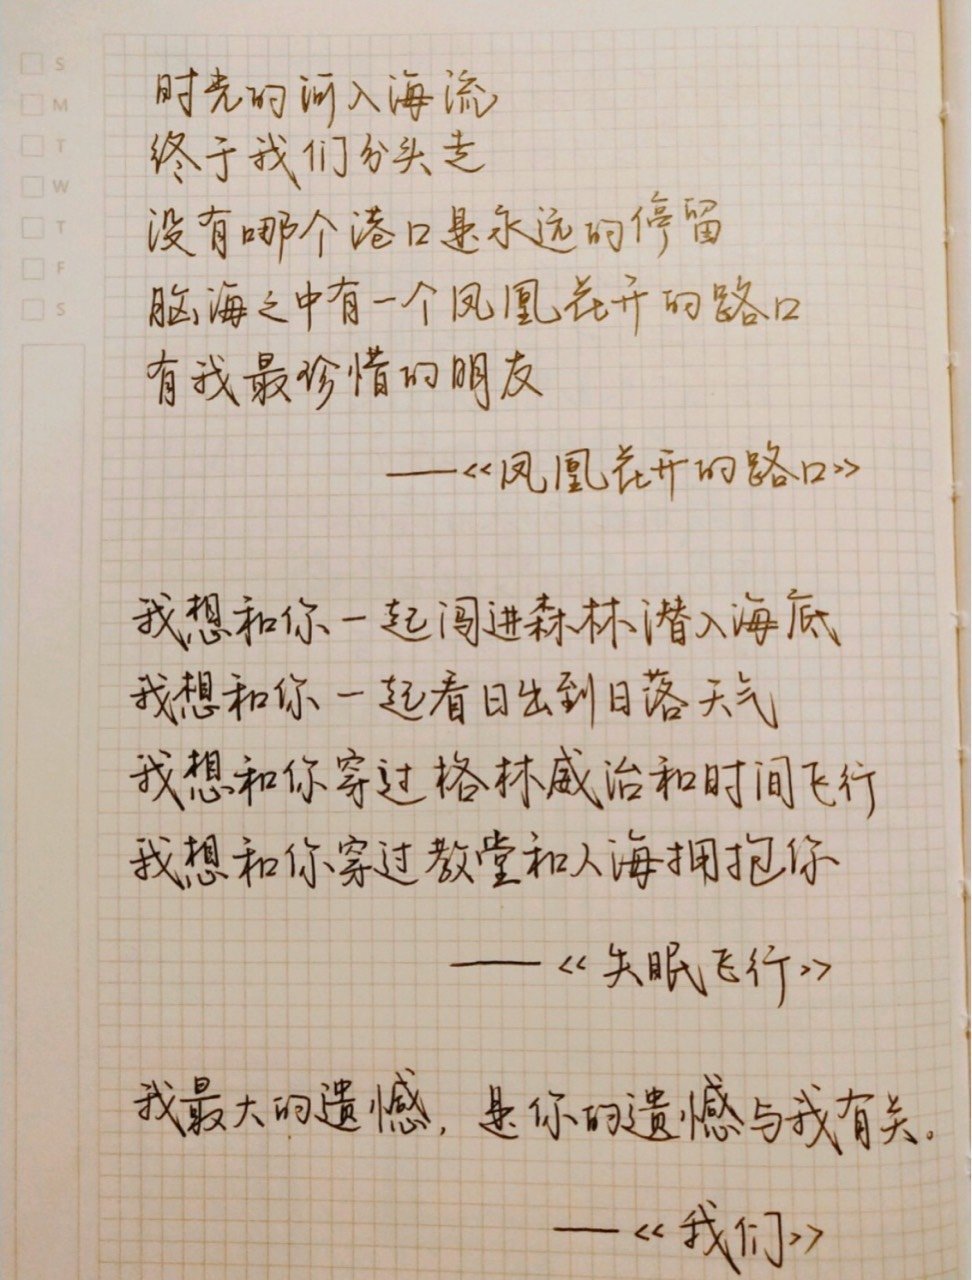 S
M
T
W
T
F
S
时光的河入海流
终于我们分头走
没有哪个港口是永远的停留
脑海之中有一个凤凰花开的路口
有我最珍惜的朋友
——《凤凰花开的路口》
我想和你一起闯进森林潜入海底
我想和你一起看日出到日落天气
我想和你穿过格林威治和时间飞行
我想和你穿过教堂和人海拥抱你
——《失眠飞行》
我最大的遗憾，是你的遗憾与我有关。
——《我们》